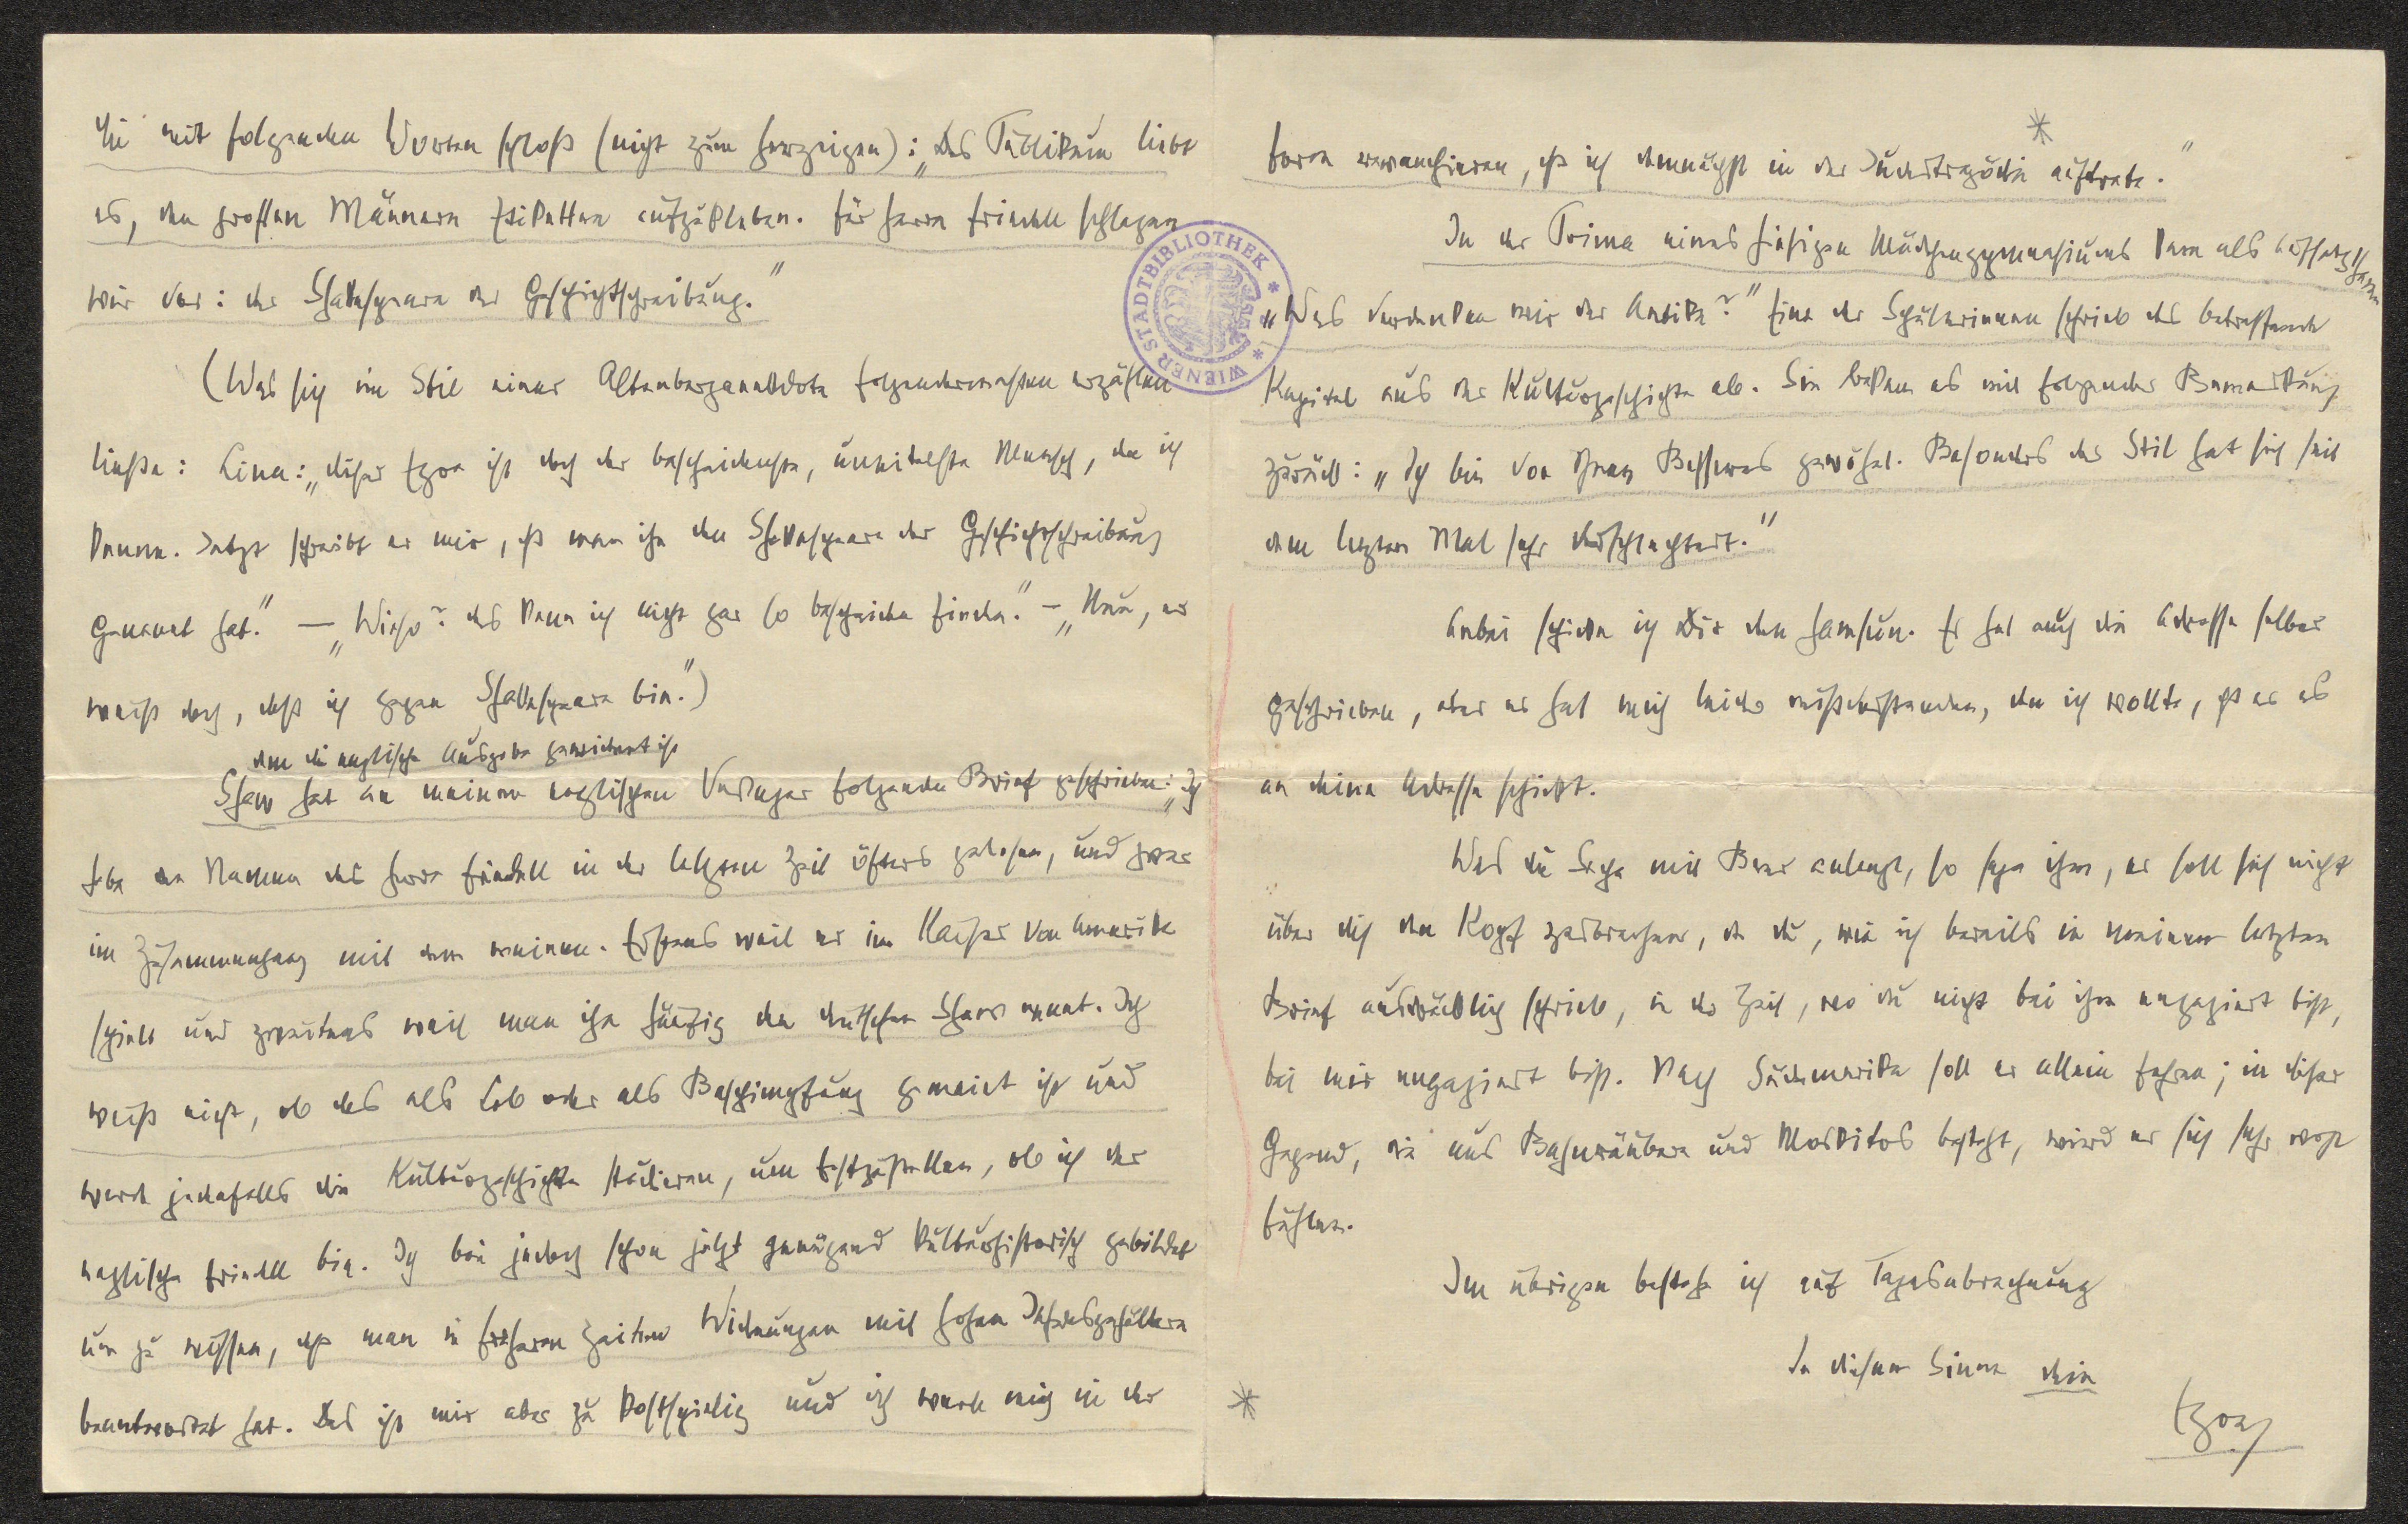 die mit folgenden Worten schloß (nicht zum herzeigen): „Das Publikum liebt
es, den großen Männern Etiketten aufzukleben. Für Herrn Friedell schlagen
wir vor: der Shakespeare der Geschichtschreibung.“
(Was sich im Stil einer Altenberganekdote folgendermaßen erzählen
ließe: Lina: „dieser Egon ist doch der bescheidenste, uneitelste Mensch, den ich
kenne. Jetzt schreibt er mir, daß man ihn den Shakespeare der Geschichtschreibung
genannt hat.“ — „Wieso? das kann ich nicht gar so bescheiden finden.“ – „Nun, er
weiß doch, daß ich gegen Shakespeare bin.“)
dem die englische Ausgabe gewidmet ist
Shaw hat an meinen englischen Verleger folgenden Brief geschrieben: „Ich
habe den Namen des Herrn Friedell in der letzten Zeit öfters gelesen, und zwar
im Zusammenhang mit dem meinen. Erstens weil er im Kaiser von Amerika
spielt und zweitens weil man ihn häufig den deutschen Shaw nennt. Ich
weiß nicht, ob das als Lob oder als Beschimpfung gemeint ist und
werde jedenfalls die Kulturgeschichte studieren, um festzustellen, ob ich der
englische Friedell bin. Ich bin jedoch schon jetzt genügend kulturhistorisch gebildet
um zu wissen, daß man in früheren Zeiten Widmungen mit hohen Jahresgehältern
beantwortet hat. Das ist mir aber zu kostspielig und ich werde mich in der
Form revanchieren, daß ich demnächst in der Judastragödie auftrete.“
*
In der Prima eines hiesigen Mädchengymnasiums kam als Aufsatzthema
„Was verdanken wir der Antike?“ Eine der Schülerinnen schrieb das betreffende
Kapitel aus der Kulturgeschichte ab. Sie bekam es mit folgender Bemerkung
zurück: „Ich bin von Ihnen Besseres gewöhnt. Besonders der Stil hat sich seit
dem letzten Mal sehr verschlechtert.“
Anbei schicke ich Dir den Hamsun. Er hat auch die Adresse selber
geschrieben, aber er hat mich leider mißverstanden, denn ich wollte, daß er es
an deine Adresse schickt.
Was die Sache mit Beer anlangt, so sage ihm, er soll sich nicht
über dich den Kopf zerbrechen, da du, wie ich bereits in meinem letzten
Brief ausdrücklich schrieb, in der Zeit, wo du nicht bei ihm engagiert bist,
bei mir engagiert bist. Nach Südamerika soll er allein fahren; in dieser
Gegend, die aus Bahnräubern und Moskitos besteht, wird er sich sehr wohl
fühlen.
Im übrigen bestehe ich auf Tagesabrechnung
In diesem Sinne dein
*
Egon
WIENER STADTBIBLIOTHEK